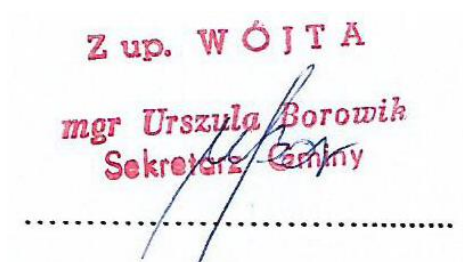 Z up. WÓJTA
mgr Urszula Borowik
Sekretarz Gminy